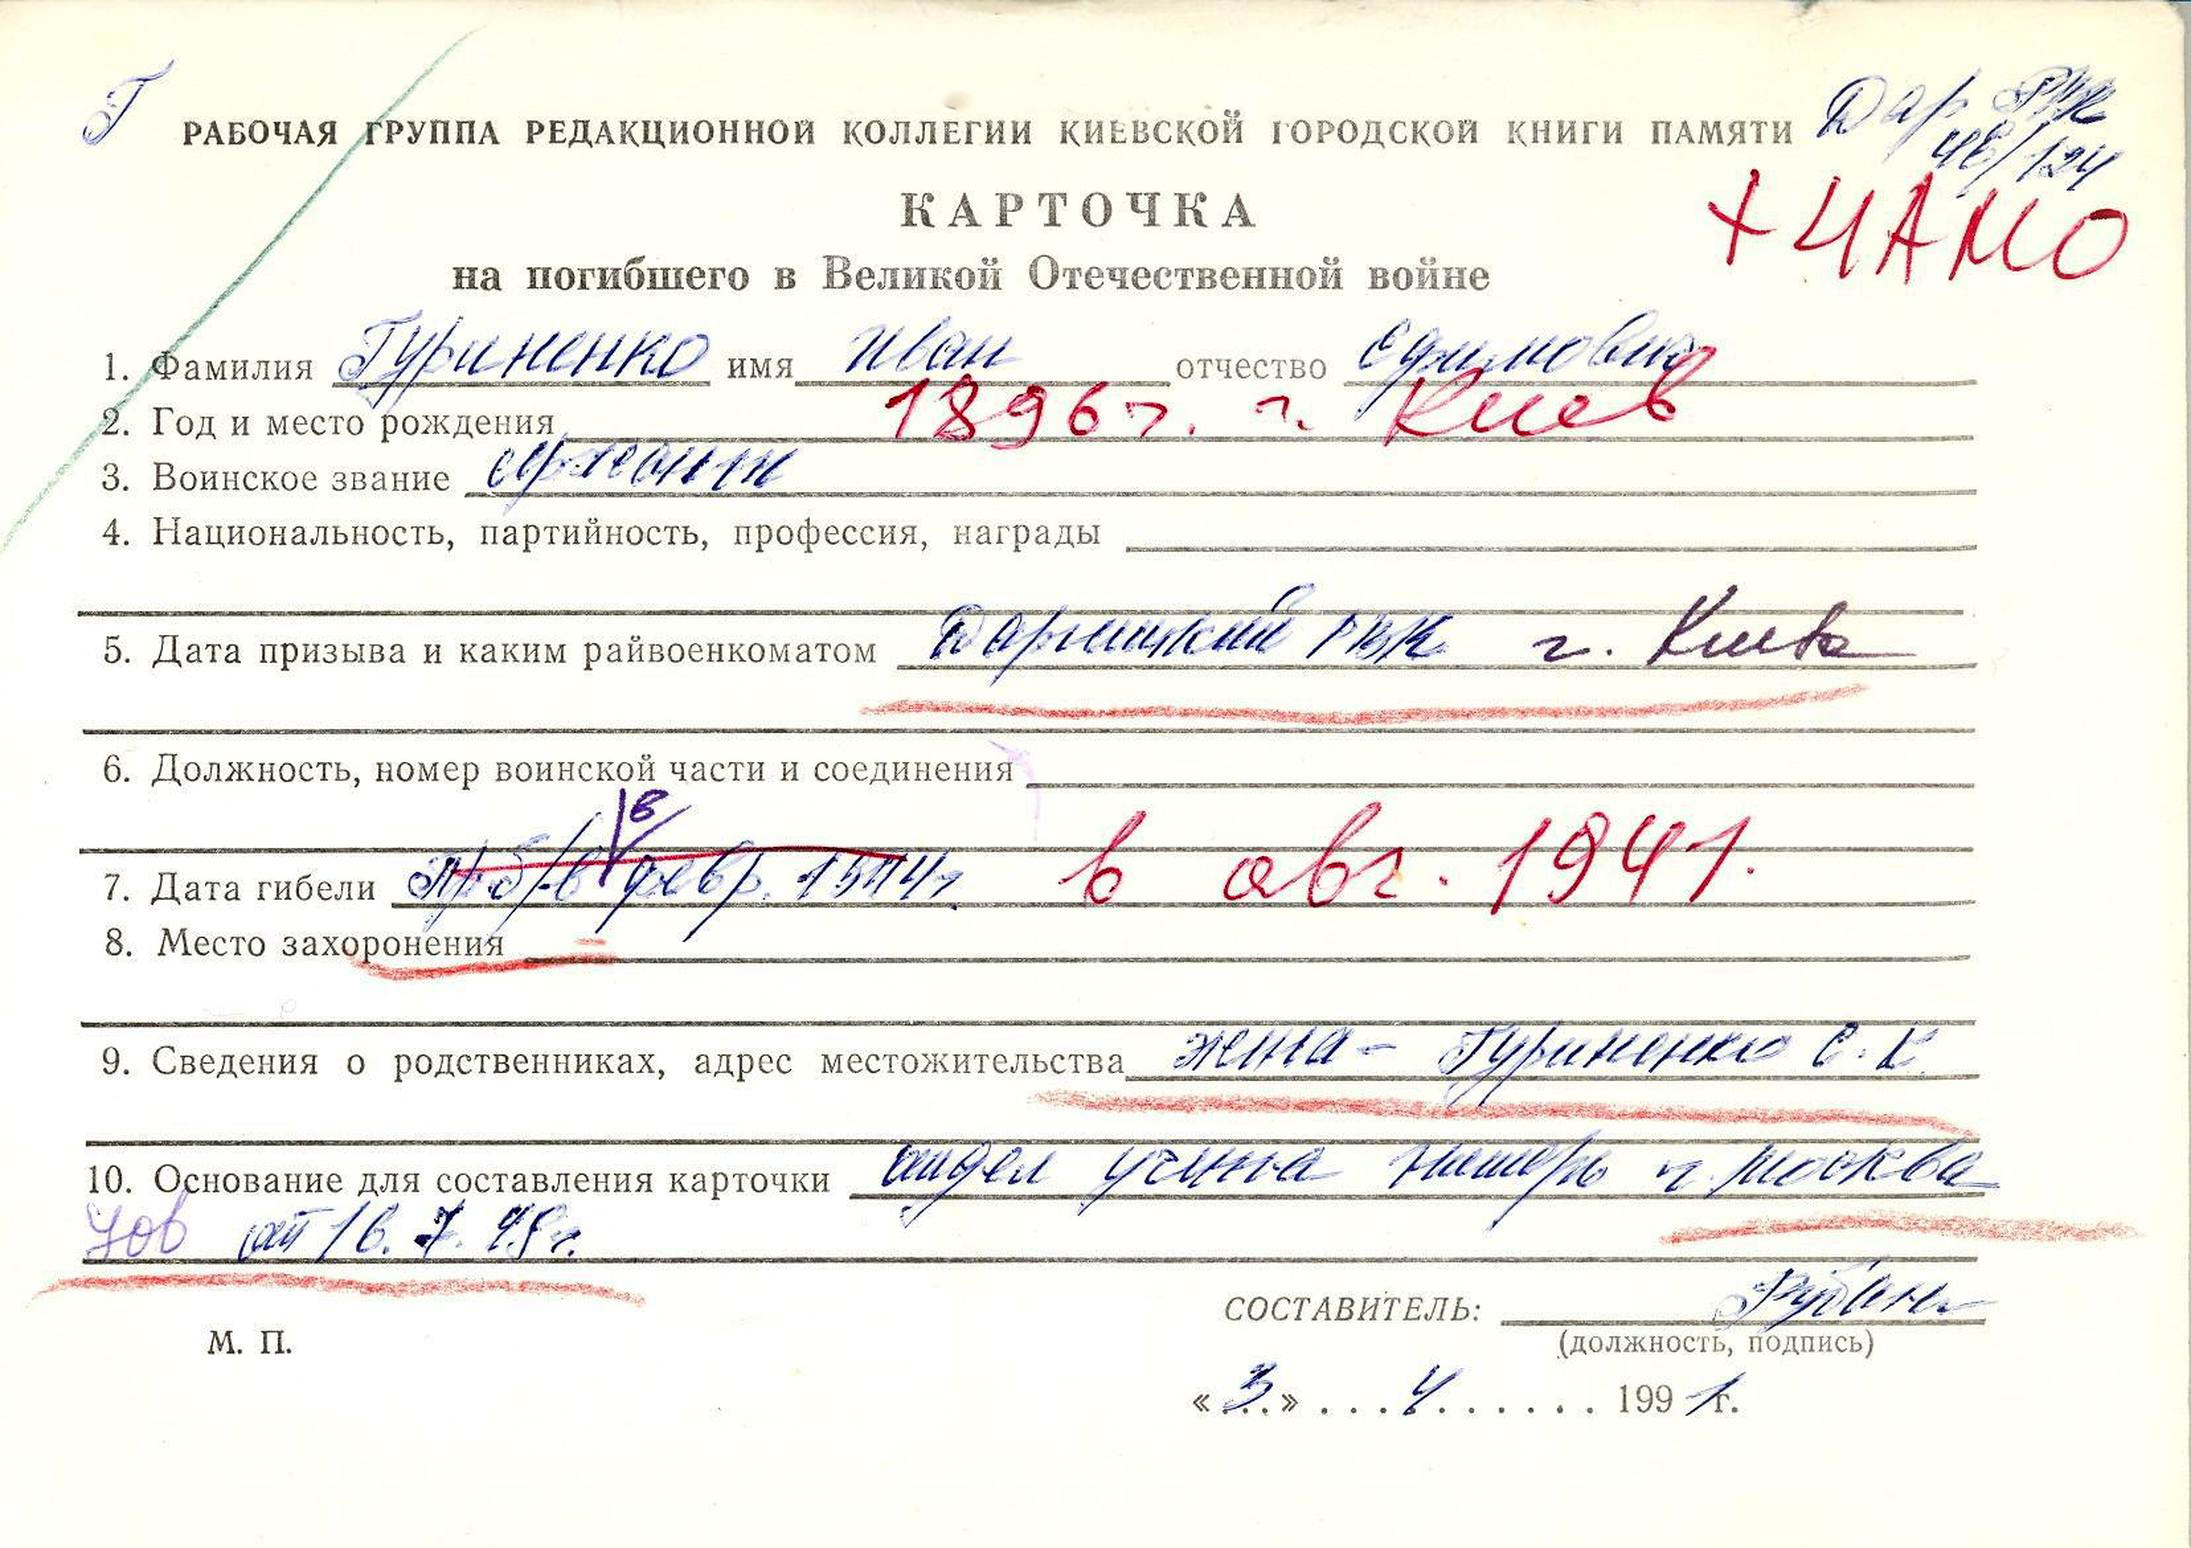 Г
Дар РВК
РАБОЧАЯ ГРУППА РЕДАКЦИОННОЙ КОЛЛЕГИИ КИЕВСКОЙ ГОРОДСКОЙ КНИГИ ПАМЯТИ
46/124
КАРТОЧКА
+ ЦАМО
на погибшего в Великой Отечественной войне
1. Фамилия Гуриненко имя Иван отчество
2. Год и место рождения 1896 г. г. Киев
3. Воинское звание сержант
4. Национальность, партийность, профессия, награды
5. Дата призыва и каким райвоенкоматом Дарницкий РВК г. Киева
6. Должность, номер воинской части и соединения
в
7. Дата гибели пр. б/в февр. 1944 г. в авг. 1941.
8. Место захоронения
9. Сведения о родственниках, адрес местожительства жена - Гуриненко С. К.
10. Основание для составления карточки отдел учета г. Москва
от 16. 7. 48 г.
СОСТАВИТЕЛЬ: Рубан
(должность, подпись)
М. П.
«3» 4 1991 г.